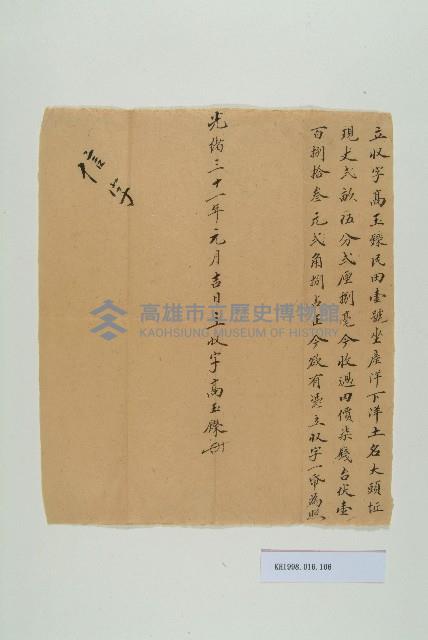 立収字高玉鏗民田壹號坐產洋下洋土名大頭坵
現丈弍畝伍分弍厘捌毫今收過田價柒賤台伏壹
百捌拾叁元弍角捌占正今欲有憑立収字一帋為照
光緒三十一年元月吉日立収字高玉鏗
信字
高雄市立歷史博物館
KAOHSIUNG MUSEUM OF HISTORY
KH1998.016.106